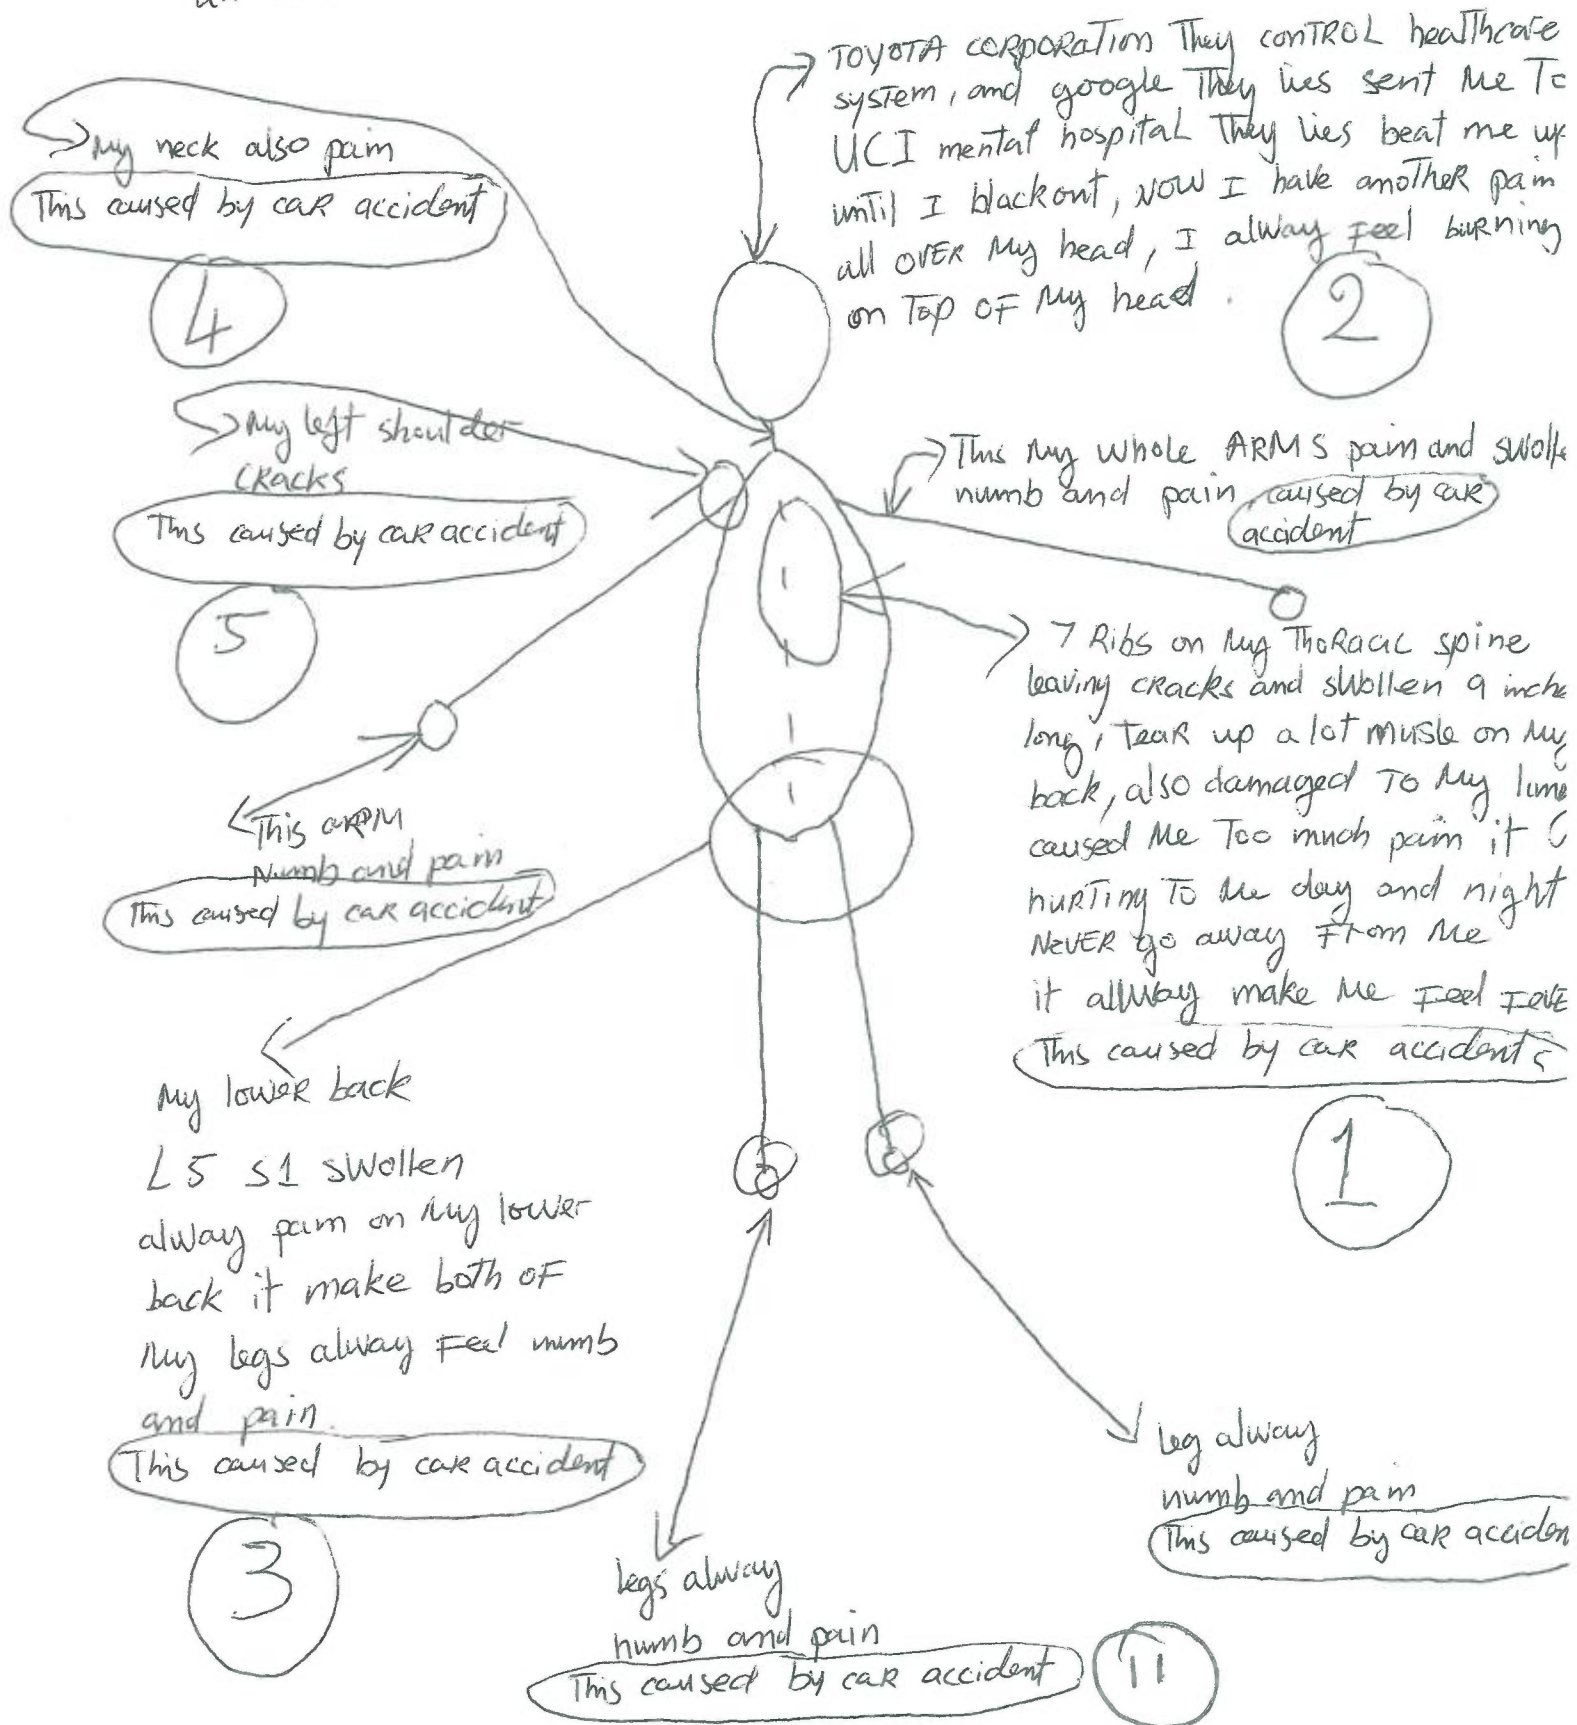 TOYOTA CORPORATION They CONTROL healthcare
system, and google They lies sent Me To
UCI mental hospital They lies beat me up
until I blackout, NOW I have anotheR pain
all OVER My head, I alway Feel buRning
on Top OF My head.
2
My neck also pain
This caused by caR accident
4
My left shoulder
CRacks
This caused by caR accident
5
This My whole ARMS pain and swolle
numb and pain, caused by caR
accident
7 Ribs on My ThoRacic spine
leaving cRacks and sWollen 9 inche
long, TeaR up a lot musle on My
back, also damaged To My
caused Me Too much pain it
huRTing To Me day and night
NeVER go away From Me
it allWay make Me Feel
This caused by caR accident
1
This aRM
Numb and pain
This caused by caR accident
My loweR back
L5 S1 sWollen
alway pain on My lower
back it make both OF
My legs alway Feel numb
and pain.
This caused by caR accident
3
leg alway
numb and pain
This caused by caR acciden
legs alway
numb and pain
This caused by caR accident
11